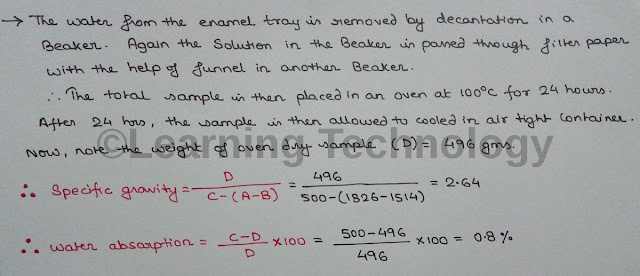 → The water from the enamel tray is removed by decantation in a
Beaker. Again the Solution in the Beaker is passed through filter paper
with the help of funnel in another Beaker.
∴ The total sample is then placed in an oven at 100°C for 24 hours.
After 24 hrs, the sample is then allowed to cooled in air tight container.
©Learning Technology
Now, note the weight of oven dry sample (D) = 496 gms.
∴ Specific gravity = D / C-(A-B) = 496 / 500-(1826-1514) = 2.64
∴ water absorption = C-D / D ×100 = 500-496 / 496 ×100 = 0.8 %